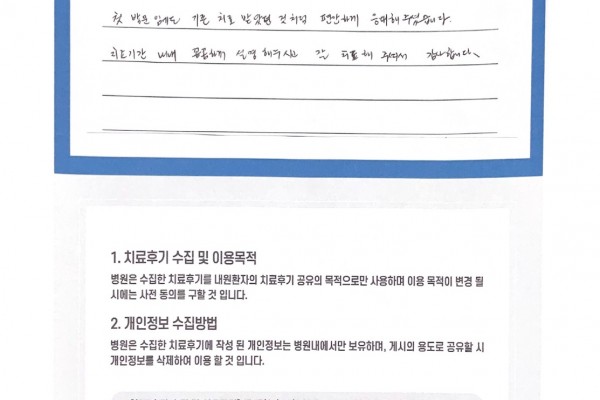 첫 방문 임에도 기존 치료 받았던 것처럼 편안하게 응대해 주셨습니다.
치료기간 내내 꼼꼼하게 설명 해주시고 잘 치료해 주셔서 감사합니다.
1. 치료후기 수집 및 이용목적
병원은 수집한 치료후기를 내원환자의 치료후기 공유의 목적으로만 사용하며 이용 목적이 변경 될
시에는 사전 동의를 구할 것 입니다.
2. 개인정보 수집방법
병원은 수집한 치료후기에 작성 된 개인정보는 병원내에서만 보유하며, 게시의 용도로 공유할 시
개인정보를 삭제하여 이용 할 것 입니다.